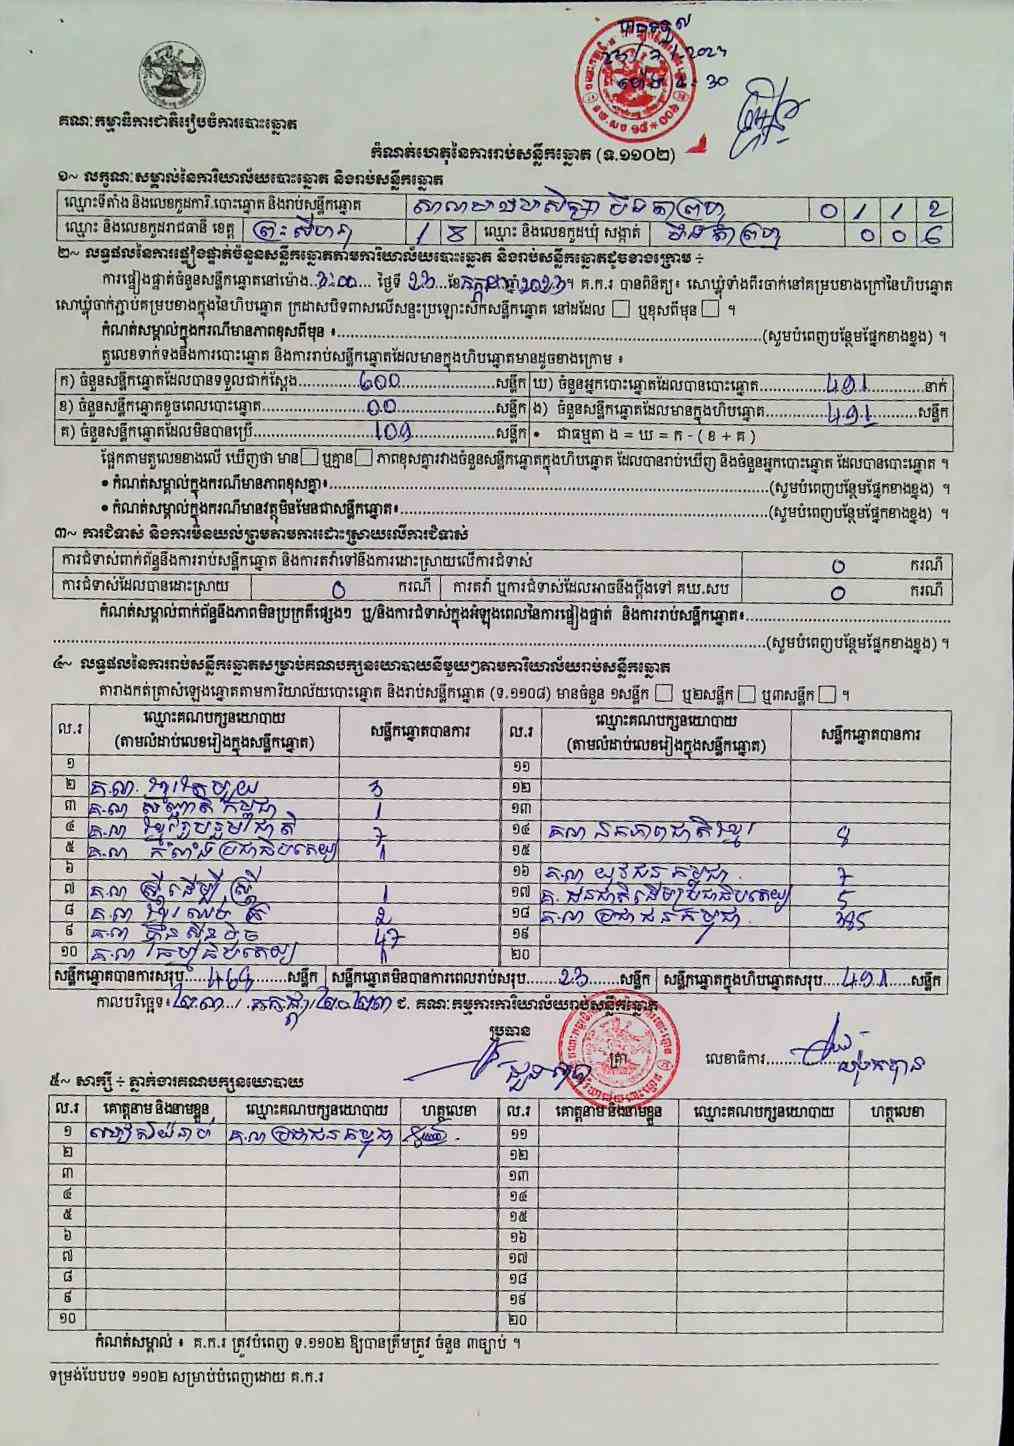 គណៈកម្មាធិការជាតិរៀបចំការបោះឆ្នោត
កំណត់ហេតុនៃការរាប់សន្លឹកឆ្នោត (ទ.១១០២)
១~ លក្ខណៈសម្គាល់នៃការិយាល័យបោះឆ្នោត និងរាប់សន្លឹកឆ្នោត
ឈ្មោះទីតាំង និងលេខកូដការិ.បោះឆ្នោត និងរាប់សន្លឹកឆ្នោត 0 1 1 2
ឈ្មោះ និងលេខកូដរាជធានី ខេត្ត ព្រះសីហនុ 1 8 ឈ្មោះ និងលេខកូដឃុំ សង្កាត់ 0 0 6
២~ លទ្ធផលនៃការផ្ទៀងផ្ទាត់ចំនួនសន្លឹកឆ្នោតតាមការិយាល័យបោះឆ្នោត និងរាប់សន្លឹកឆ្នោតដូចខាងក្រោម ÷
ការផ្ទៀងផ្ទាត់ចំនួនសន្លឹកឆ្នោតនៅម៉ោង..3:00... ថ្ងៃទី 23 ខែកក្កដា ឆ្នាំ 2023។ គ.ក.រ បានពិនិត្យ៖ សោឃ្លុំទាំងពីរចាក់នៅគម្របខាងក្រៅនៃហិបឆ្នោត
សោឃ្លុំចាក់ភ្ជាប់គម្របខាងក្នុងនៃហិបឆ្នោត ក្រដាសបិទពាសលើសន្ទះប្រឡោះសឹកសន្លឹកឆ្នោត នៅដដែល ☐ ឬខុសពីមុន ☐ ។
កំណត់សម្គាល់ក្នុងករណីមានភាពខុសពីមុន ៖.....(សូមបំពេញបន្ថែមផ្នែកខាងខ្នង) ។
តួលេខទាក់ទងនឹងការបោះឆ្នោត និងការរាប់សន្លឹកឆ្នោតដែលមានក្នុងហិបឆ្នោតមានដូចខាងក្រោម ៖
ក) ចំនួនសន្លឹកឆ្នោតដែលបានទទួលជាក់ស្តែង.....600.....សន្លឹក ឃ) ចំនួនអ្នកបោះឆ្នោតដែលបានបោះឆ្នោត.....491.....នាក់
ខ) ចំនួនសន្លឹកឆ្នោតខូចពេលបោះឆ្នោត.....00.....សន្លឹក ង) ចំនួនសន្លឹកឆ្នោតដែលមានក្នុងហិបឆ្នោត.....491.....សន្លឹក
គ) ចំនួនសន្លឹកឆ្នោតដែលមិនបានប្រើ.....109.....សន្លឹក • ជាធម្មតា ង = ឃ = ក - ( ខ + គ )
ផ្អែកតាមតួលេខខាងលើ ឃើញថា មាន☐ ឬគ្មាន☐ ភាពខុសគ្នារវាងចំនួនសន្លឹកឆ្នោតក្នុងហិបឆ្នោត ដែលបានរាប់ឃើញ និងចំនួនអ្នកបោះឆ្នោត ដែលបានបោះឆ្នោត ។
• កំណត់សម្គាល់ក្នុងករណីមានភាពខុសគ្នា៖.....(សូមបំពេញបន្ថែមផ្នែកខាងខ្នង) ។
• កំណត់សម្គាល់ក្នុងករណីមានវត្ថុមិនមែនជាសន្លឹកឆ្នោត៖.....(សូមបំពេញបន្ថែមផ្នែកខាងខ្នង) ។
៣~ ការជំទាស់ និងការមិនយល់ព្រមតាមការដោះស្រាយលើការជំទាស់
ការជំទាស់ពាក់ព័ន្ធនឹងការរាប់សន្លឹកឆ្នោត និងការតវ៉ាទៅនឹងការដោះស្រាយលើការជំទាស់ 0 ករណី
ការជំទាស់ដែលបានដោះស្រាយ 0 ករណី ការតវ៉ា ឬការជំទាស់ដែលអាចនឹងប្តឹងទៅ គឃ.សប 0 ករណី
កំណត់សម្គាល់ពាក់ព័ន្ធនឹងភាពមិនប្រក្រតីផ្សេងៗ ឬ/និងការជំទាស់ក្នុងអំឡុងពេលនៃការផ្ទៀងផ្ទាត់ និងការរាប់សន្លឹកឆ្នោត៖.....
.....(សូមបំពេញបន្ថែមផ្នែកខាងខ្នង) ។
៤~ លទ្ធផលនៃការរាប់សន្លឹកឆ្នោតសម្រាប់គណបក្សនយោបាយនីមួយៗតាមការិយាល័យរាប់សន្លឹកឆ្នោត
តារាងកត់ត្រាសំឡេងឆ្នោតតាមការិយាល័យបោះឆ្នោត និងរាប់សន្លឹកឆ្នោត (ទ.១១០៨) មានចំនួន ១សន្លឹក ☐ ឬ២សន្លឹក ☐ ឬ៣សន្លឹក ☐ ។
ល.រ ឈ្មោះគណបក្សនយោបាយ (តាមលំដាប់លេខរៀងក្នុងសន្លឹកឆ្នោត) សន្លឹកឆ្នោតបានការ ល.រ ឈ្មោះគណបក្សនយោបាយ (តាមលំដាប់លេខរៀងក្នុងសន្លឹកឆ្នោត) សន្លឹកឆ្នោតបានការ
១ ១១
២ គ.ប ខ្មែរតែមួយ 3 ១២
៣ គ.ប សញ្ជាតិកម្ពុជា 1 ១៣
៤ គ.ប ខ្មែររួបរួមជាតិ 7 ១៤ គ.ប ឯកភាពជាតិខ្មែរ 8
៥ គ.ប កំលាំងប្រជាធិបតេយ្យ 1 ១៥
៦ ១៦ គ.ប យុវជនកម្ពុជា 7
៧ គ.ប ស្ត្រីដើម្បីស្ត្រី 1 ១៧ គ. ជនជាតិដើមប្រជាធិបតេយ្យ 5
៨ 2 ១៨ គ.ប ប្រជាជនកម្ពុជា 385
៩ គ.ប ហ៊្វុនស៊ិនប៉ិច 47 ១៩
១០ គ.ប ធម្មាធិបតេយ្យ 1 ២០
សន្លឹកឆ្នោតបានការសរុប.....464.....សន្លឹក សន្លឹកឆ្នោតមិនបានការពេលរាប់សរុប.....23.....សន្លឹក សន្លឹកឆ្នោតក្នុងហិបឆ្នោតសរុប.....491.....សន្លឹក
កាលបរិច្ឆេទ៖ ២៣/កក្កដា/២០២៣ ជ. គណៈកម្មការការិយាល័យរាប់សន្លឹកឆ្នោត
ប្រធាន
ត្រា
លេខាធិការ
៥~ សាក្សី ÷ ភ្នាក់ងារគណបក្សនយោបាយ
ល.រ គោត្តនាម និងនាមខ្លួន ឈ្មោះគណបក្សនយោបាយ ហត្ថលេខា ល.រ គោត្តនាម និងនាមខ្លួន ឈ្មោះគណបក្សនយោបាយ ហត្ថលេខា
១ គ.ប ប្រជាជនកម្ពុជា ១១
២ ១២
៣ ១៣
៤ ១៤
៥ ១៥
៦ ១៦
៧ ១៧
៨ ១៨
៩ ១៩
១០ ២០
កំណត់សម្គាល់ ៖ គ.ក.រ ត្រូវបំពេញ ទ.១១០២ ឱ្យបានត្រឹមត្រូវ ចំនួន ៣ច្បាប់ ។
ទម្រង់បែបបទ ១១០២ សម្រាប់បំពេញដោយ គ.ក.រ